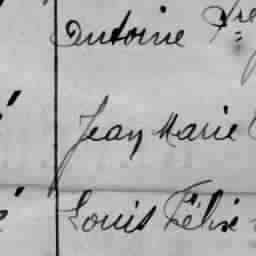 Antoine
Jean Marie
Louis Félix